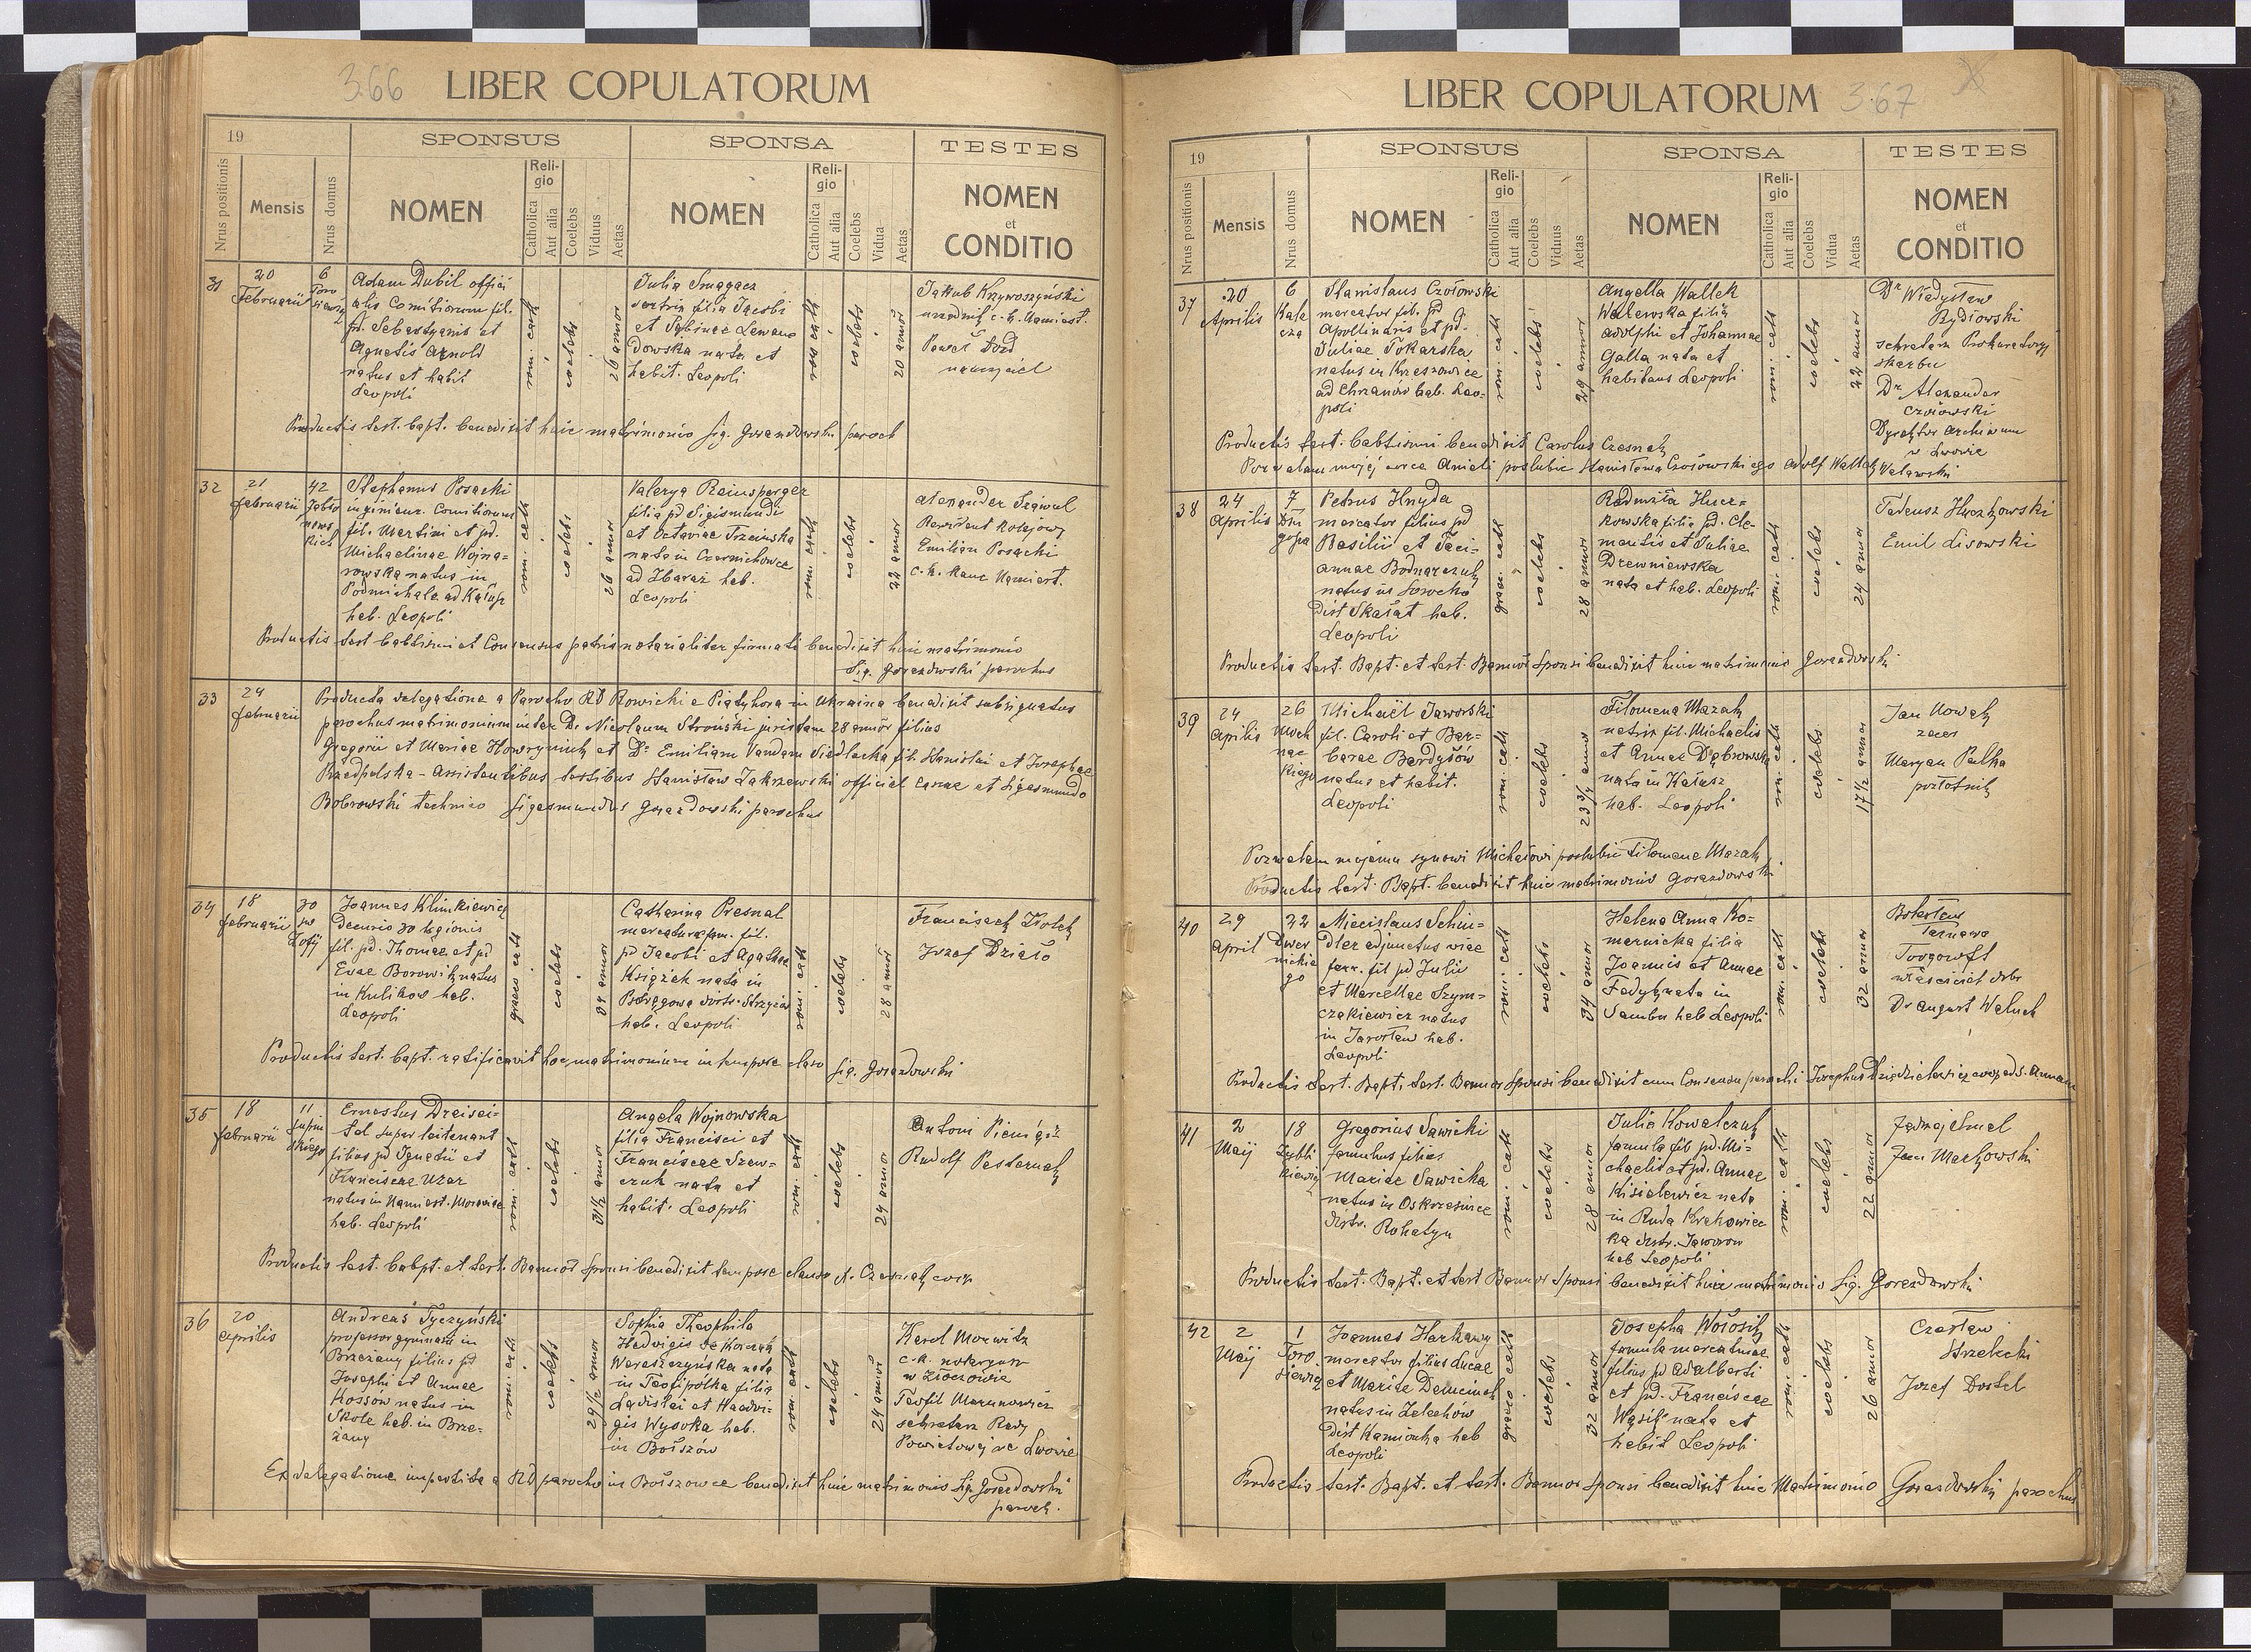 366 LIBER COPULATORUM
19
SPONSUS SPONSA TESTES
Nrus positionis Mensis Nrus domus NOMEN Religio Catholica Aut alia Coelebs Viduus Aetas NOMEN Religio Catholica Aut alia Coelebs Vidua Aetas NOMEN et CONDITIO
31
20
Februarii
6
Adam Dubil offici
alis Comitiorum fil.
pd. Sebastyanis et
Agnetis Arnold
natus et habit
Leopoli
rom. cath
coelebs
26 annor
Julia Smagacz
filia Jacobi
et
dowska nata et
habit. Leopoli
rom cath
coelebs
20 annor
Jakub Krzywoszyński
urzędnik c. k. Namiest.
Paweł
Productis test. bapt. benedixit huic matrimonio Sig. Gorazdowski paroch
32
21
februarii
42
Stephanus Posacki
inginieur. Comitiorum
fil. Martini et pd.
Michaelinae Wojna=
rowska natus in
Podmichale ad Kałusz
hab. Leopoli
rom. cath
coelebs
26 annor
Valerya Reinsperger
filia pd Sigismundi
et Octaviae Trzcińska
nata in Czernichowce
ad Zbaraż hab.
Leopoli
rom. cath
coelebs
22 annor
Alexander
Rewident kolejowy
Emilian Posacki
c. k. Namiest.
Productis test babtismi et Consensus patris notarialiter firmati benedixit huic matrimonio
Sig. Gorazdowski parochus
33
24
februarii
Producta delegatione a Parocho RD Rowicki e Piatyhora in Ukraina benedixit subsignatus
parochus matrimonium inter D. Nicolaum Stroński juristam 28 annor filius
Gregorii et Mariae Howryniuk et Dr. Emiliam Vandam Siedlecka fil. Stanislai et Josephae
Przedpelska - Assistentibus testibus Stanisław Zakrzewski official et Sigesmundo
Bobrowski technico Sigesmundus Gorazdowski parochus
34
18
februarii
30
Zofij
Joannes Klimkiewicz
Decurio 30 legionis
fil. pd. Thomae et pd
Evae Borowik natus
in Kulikow hab.
Leopoli
graeco cath
coelebs
34 annor
Catharina Presnal
fil.
pd Jacobi et Agathae
Książek nata in
distr. Strzyżów
hab. Leopoli
rom. cath
coelebs
28 annor
Franciszek
Jozef Działo
Productis test. bapt. ratificavit hoc matrimonium in tempore clauso Sig. Gorazdowski
35
18
februarii
11
Supiń
skiego
Ernestus Dreisei-
tel super leitenant
filius pd Ignatii et
Franciscae
natus in Namiest. Moraviae
hab. Leopoli
rom. cath
coelebs
31½ annor
Angela Wojnowska
filia Francisci et
Franciscae Szew-
czuk nata et
habit. Leopoli
rom. cath
coelebs
24 annor
Antoni
Rudolf Pasternak
Productis test. babpt. et test. Bannor Sponsi benedixit tempore clauso Czesnak coop.
36
20
Aprilis
Andreas Tyczyński
professor gymnasii in
Brzeżany filius pd
Josephi et Annae
Kossów natus in
Skole hab in Brze-
żany
rom. cath
coelebs
29½ annor
Sophia Theophila
Hedvigis de Korczak
Wereszczyńska nata
in Teofipółka filia
Ladislai et Haedvi-
gis Wysocka hab.
in Bołszów
rom cath
coelebs
24 annor
Karol Morwitz
c. k. notaryusz
w Złoczowie
Teofil Merunowicz
sekretarz Rady
Powiatowej we Lwowie
Ex delegatione impertita a RD parocho in Bołszowce benedixit huic matrimonio Sig. Gorazdowski
paroch.
LIBER COPULATORUM 367
19
SPONSUS SPONSA TESTES
Nrus positionis Mensis Nrus domus NOMEN Religio Catholica Aut alia Coelebs Viduus Aetas NOMEN Religio Catholica Aut alia Coelebs Vidua Aetas NOMEN et CONDITIO
37
20
Aprilis
6
Kale
cza
Stanislaus Czołowski
mercator fil. pd
Apollinaris et pd.
Juliae Tokarska
natus in Krzeszowice
ad Chrzanów hab. Leo-
poli
rom. cath
coelebs
29 annor
Angella Wallek
Walewska filia
Adolphi et Johannae
Galla nata et
habitans Leopoli
rom. cath
coelebs
22 annor
Dr Władysław
Bydłowski
sekretarz Prokuratoryi
skarbu
Dr. Alexander
Czołowski
Dyrektor Archiwum
w Lwowie
Productis test. babtismi benedixit Carolus Czesnak
Pozwalam mojej córce Anieli poslubic Stanisława Czołowskiego Adolf Wallek Walewski
38
24
Aprilis
7
Petrus Hnyda
mercator filius pd
Basilii et Taci-
annae Bodnarczuk
natus in Sorocko
Dist Skałat hab.
Leopoli
graec. cath
coelebs
28 annor
Radmiła Hucz=
kowska filia pd. Cle-
mentis et Juliae
Drewniewska
nata et hab. Leopoli
rom. cath
coelebs
24 annor
Tadeusz Huczkowski
Emil Lisowski
Productis test. Bapt. et test. Bannor Sponsi benedixit huic matrimonio Gorazdowski
39
24
Aprilis
26
Moch
nac
kiego
Michaël Jaworski
fil. Caroli et Bar-
barae Bardyłów
natus et habit.
Leopoli
rom. cath
coelebs
23 3/4 annor
Filomena Mazak
fil. Michaelis
et Annae Dąbrowska
nata in Kałusz
hab. Leopoli
rom. cath
coelebs
17½ annor
Jan Nowak
zecer
Maryan Pałka
pozłotnik
Pozwalam mojemu synowi Michałowi poslubic Filomene Mazak
Productis test. Bapt. benedixit huic matrimonio Gorazdowski
40
29
April
22
Dwer
nickie
go
Miecislaus Schin=
dler adjunctus viae
ferr. fil pd Julii
et Marcellae Szym=
czakiewicz natus
in Jarosław hab.
Leopoli
rom. cath
coelebs
34 annor
Helena Anna Ko=
mernicka filia
Joannis et Annae
Fedyk nata in
Sambor hab Leopoli
rom. cath
coelebs
32 annor
Bolesław
Tarnawa
właściciel dobr
Dr August Waluch
Productis test. Bapt. test. Bannor Sponsi benedixit cum Consensu parochi Josephus Dziedzielewicz coop. ad S. Annam
41
2
Maij
18
Zybli
kiewicz
Gregorius Sawicki
famulus filius
Mariae Sawicka
natus in Oskrzesince
distr. Rohatyn
rom. cath
coelebs
28 annor
Julia Kowalczuk
famula fil pd. Mi-
chaelis et pd. Annae
Kisielewicz nata
in Ruda Krakowiec
ka distr. Jaworow
hab Leopoli
rom. cath
coelebs
22 annor
Jędrzej Smal
Jan Markowski
Productis test. Bapt. et test Bannor Sponsi benedixit huic matrimonio Sig. Gorazdowski
42
2
Maij
1
Toro
siewicz
Joannes Harkawy
mercator filius Lucae
et Mariae
natus in Zelechów
Dist Kamionka hab
Leopoli
graeco cath
coelebs
32 annor
Josepha Wołosik
famula mercaturae
filius pd Adalberti
et pd. Franciscae
Wąsik nata et
habit Leopoli
rom. cath
coelebs
26 annor
Czesław
Strzelecki
Jozef Dostal
Productis test. Bapt. et test. Bannor Sponsi benedixit huic Matrimonio Gorazdowski parochus